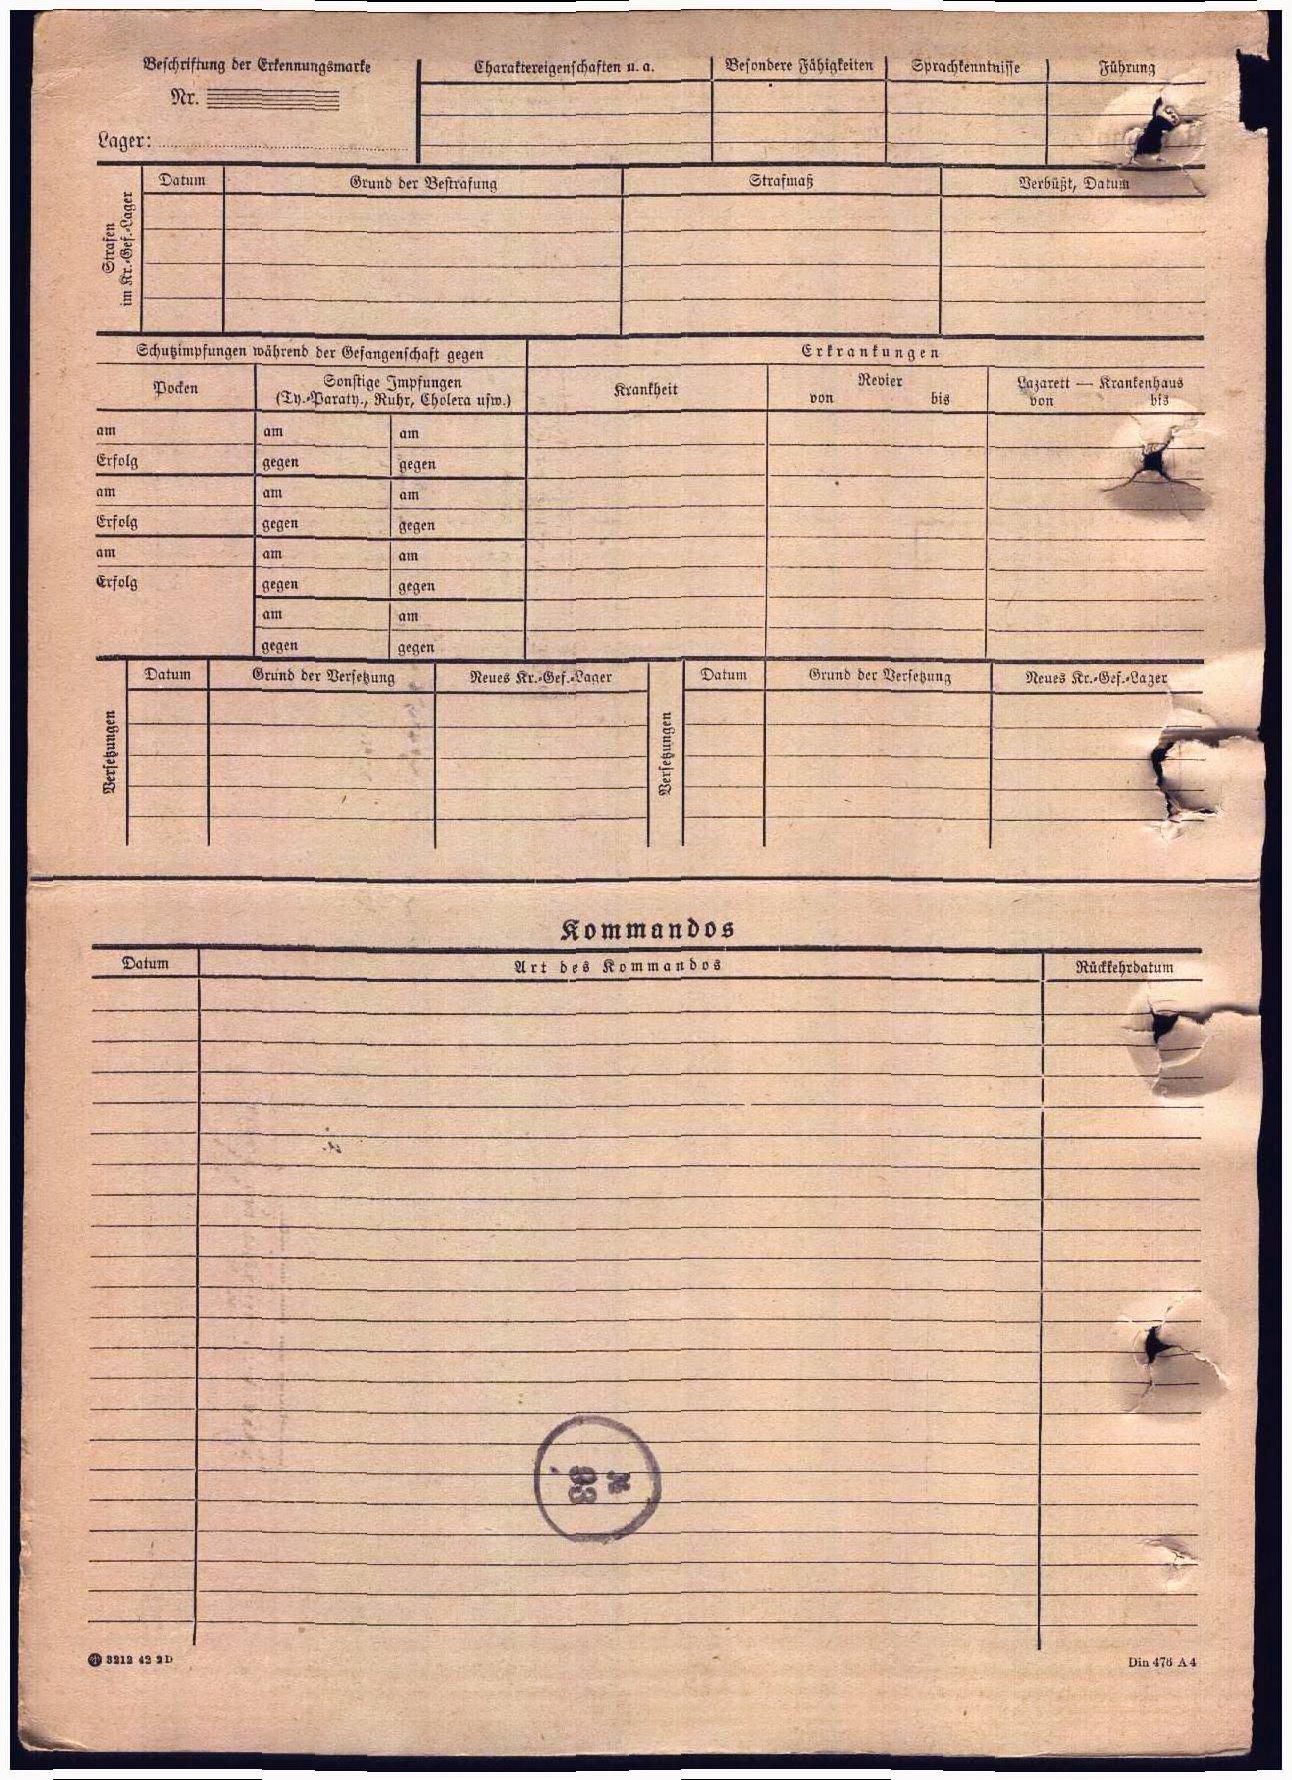 Beschriftung der Erkennungsmarke
Nr.
Lager:
Charaktereigenschaften u. a.
Besondere Fähigkeiten
Sprachkenntnisse
Führung
Strafen
im Kr.-Gef.-Lager
Datum
Grund der Bestrafung
Strafmaß
Verbüßt, Datum
Schutzimpfungen während der Gefangenschaft gegen
Erkrankungen
Pocken
Sonstige Impfungen
(Ty.-Paraty., Ruhr, Cholera usw.)
Krankheit
Revier
von bis
Lazarett — Krankenhaus
von bis
am am am
Erfolg gegen gegen
am am am
Erfolg gegen gegen
am am am
Erfolg gegen gegen
am am
gegen gegen
Versetzungen
Datum
Grund der Versetzung
Neues Kr.-Gef.-Lager
Versetzungen
Datum
Grund der Versetzung
Neues Kr.-Gef.-Lager
Kommandos
Datum
Art des Kommandos
Rückkehrdatum
№
93
3212 42 2D
Din 476 A 4